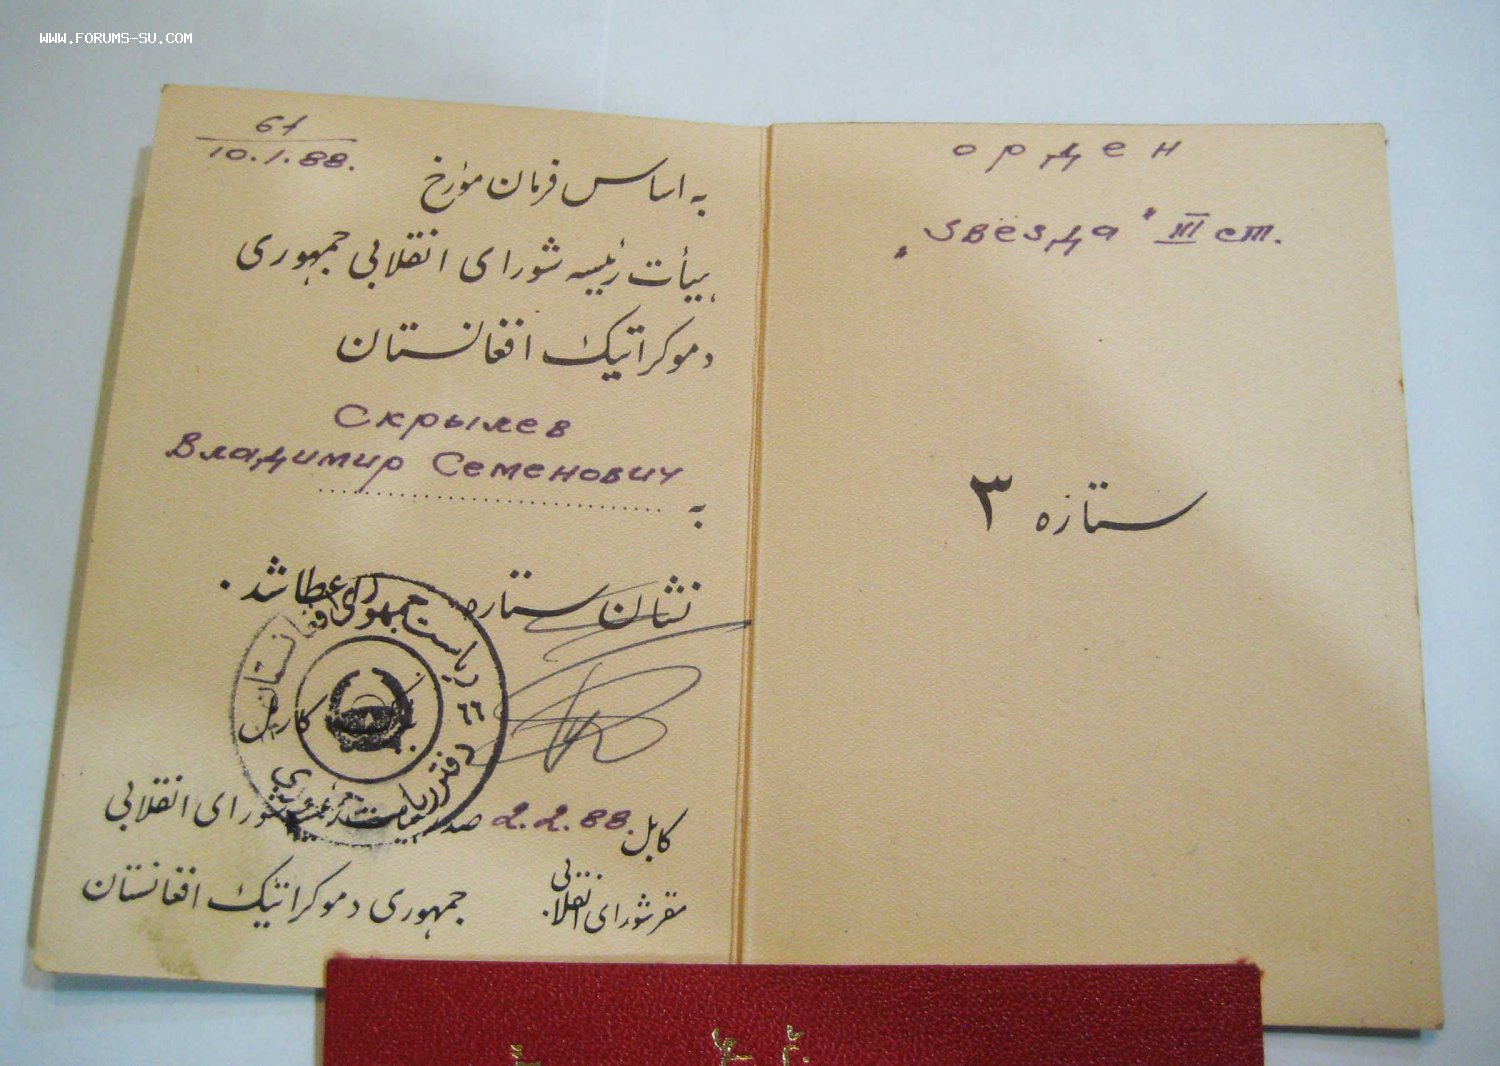 WWW.FORUMS-SU.COM
61
10.1.88.
به اساس فرمان مؤرخ
هیأت رئیسه شورای انقلابی جمهوری
دموکراتیک افغانستان
Скрылев
Владимир Семенович
به
نشان ستاره عطا شد.
ریاست جمهوری افغانستان
دفتر ریاست جمهوری
کابل
٦٦
کابل 2.2.88. صدر هیأت رئیسه شورای انقلابی
مقر شورای انقلابی جمهوری دموکراتیک افغانستان
орден
„Звезда" III ст.
ستاره ۳